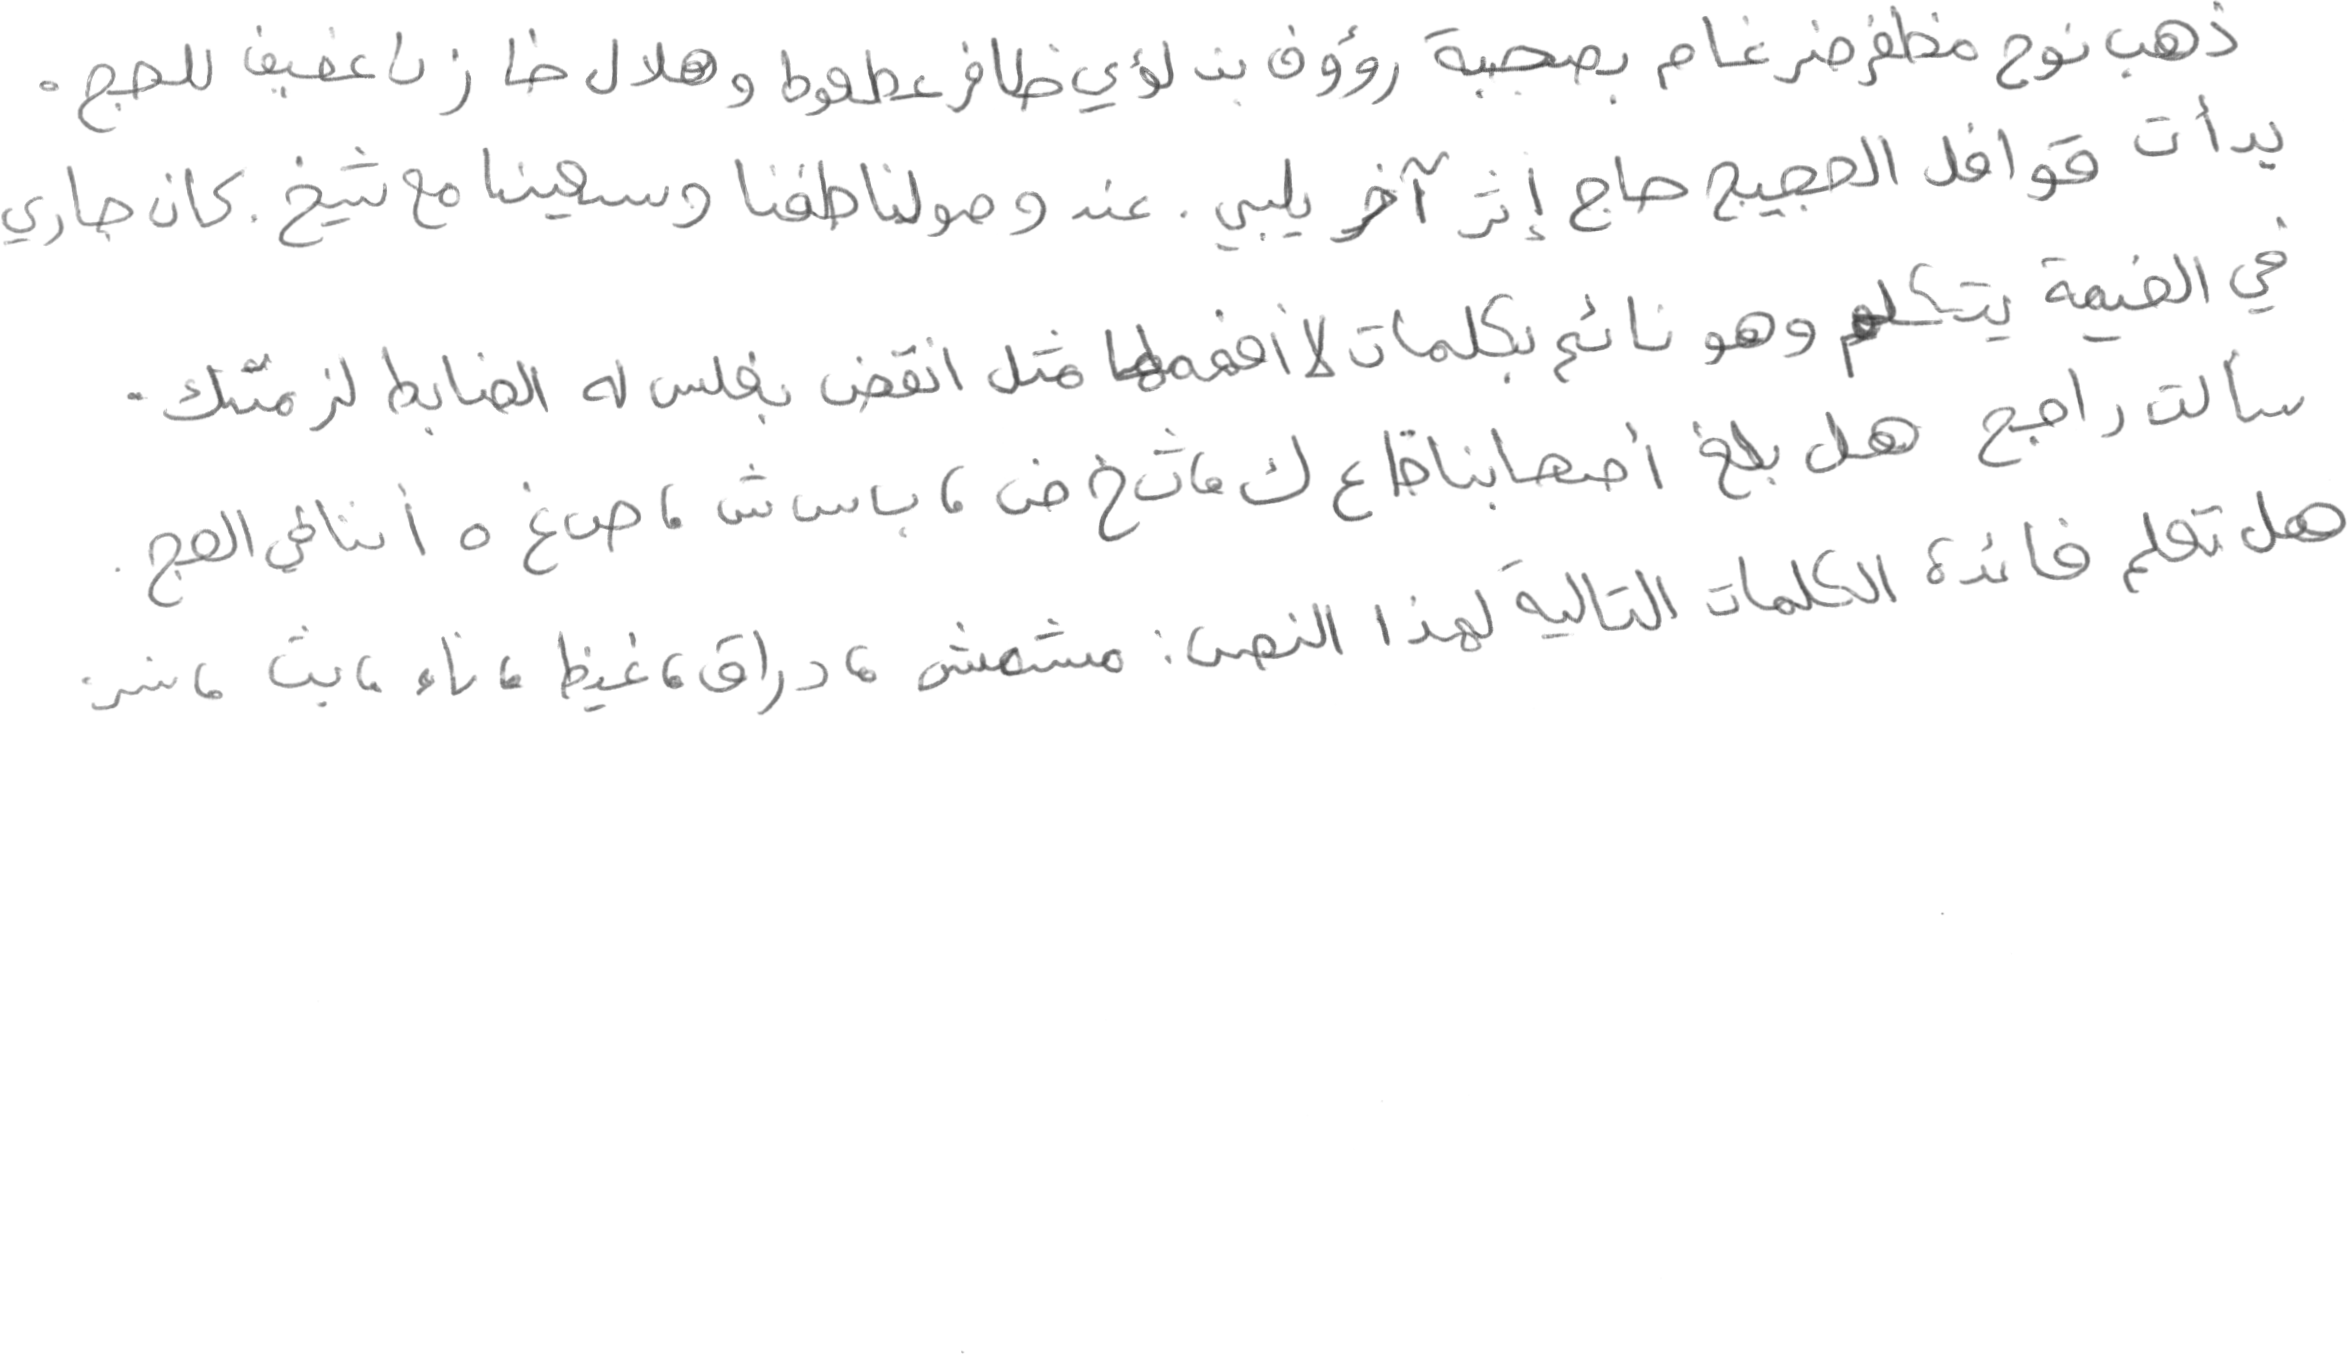 ذهب نوح مظفر ضرغام بصحبة رؤوف بن لؤي ظافر عطعوط وهلال خازن عفيف للحج.
بدأت قوافل الحجيج حاج إثر آخر يلبي. عند وصولنا طفنا وسعينا مع شيخ. كان جاري
في الخيمة يتكلم وهو نائم بكلمات لا أفهمها مثل انقض بغلس له الضابط لز مشك.
سألت راجح هل بلغ أصحابنا ظ ع ك ، ث خ ض ، ب س ش ، ص غ ه أننا في الحج.
هل تعلم فائدة الكلمات التالية لهذا النص: مشمش ، دراق ، غيظ ، ناء ، بث ،